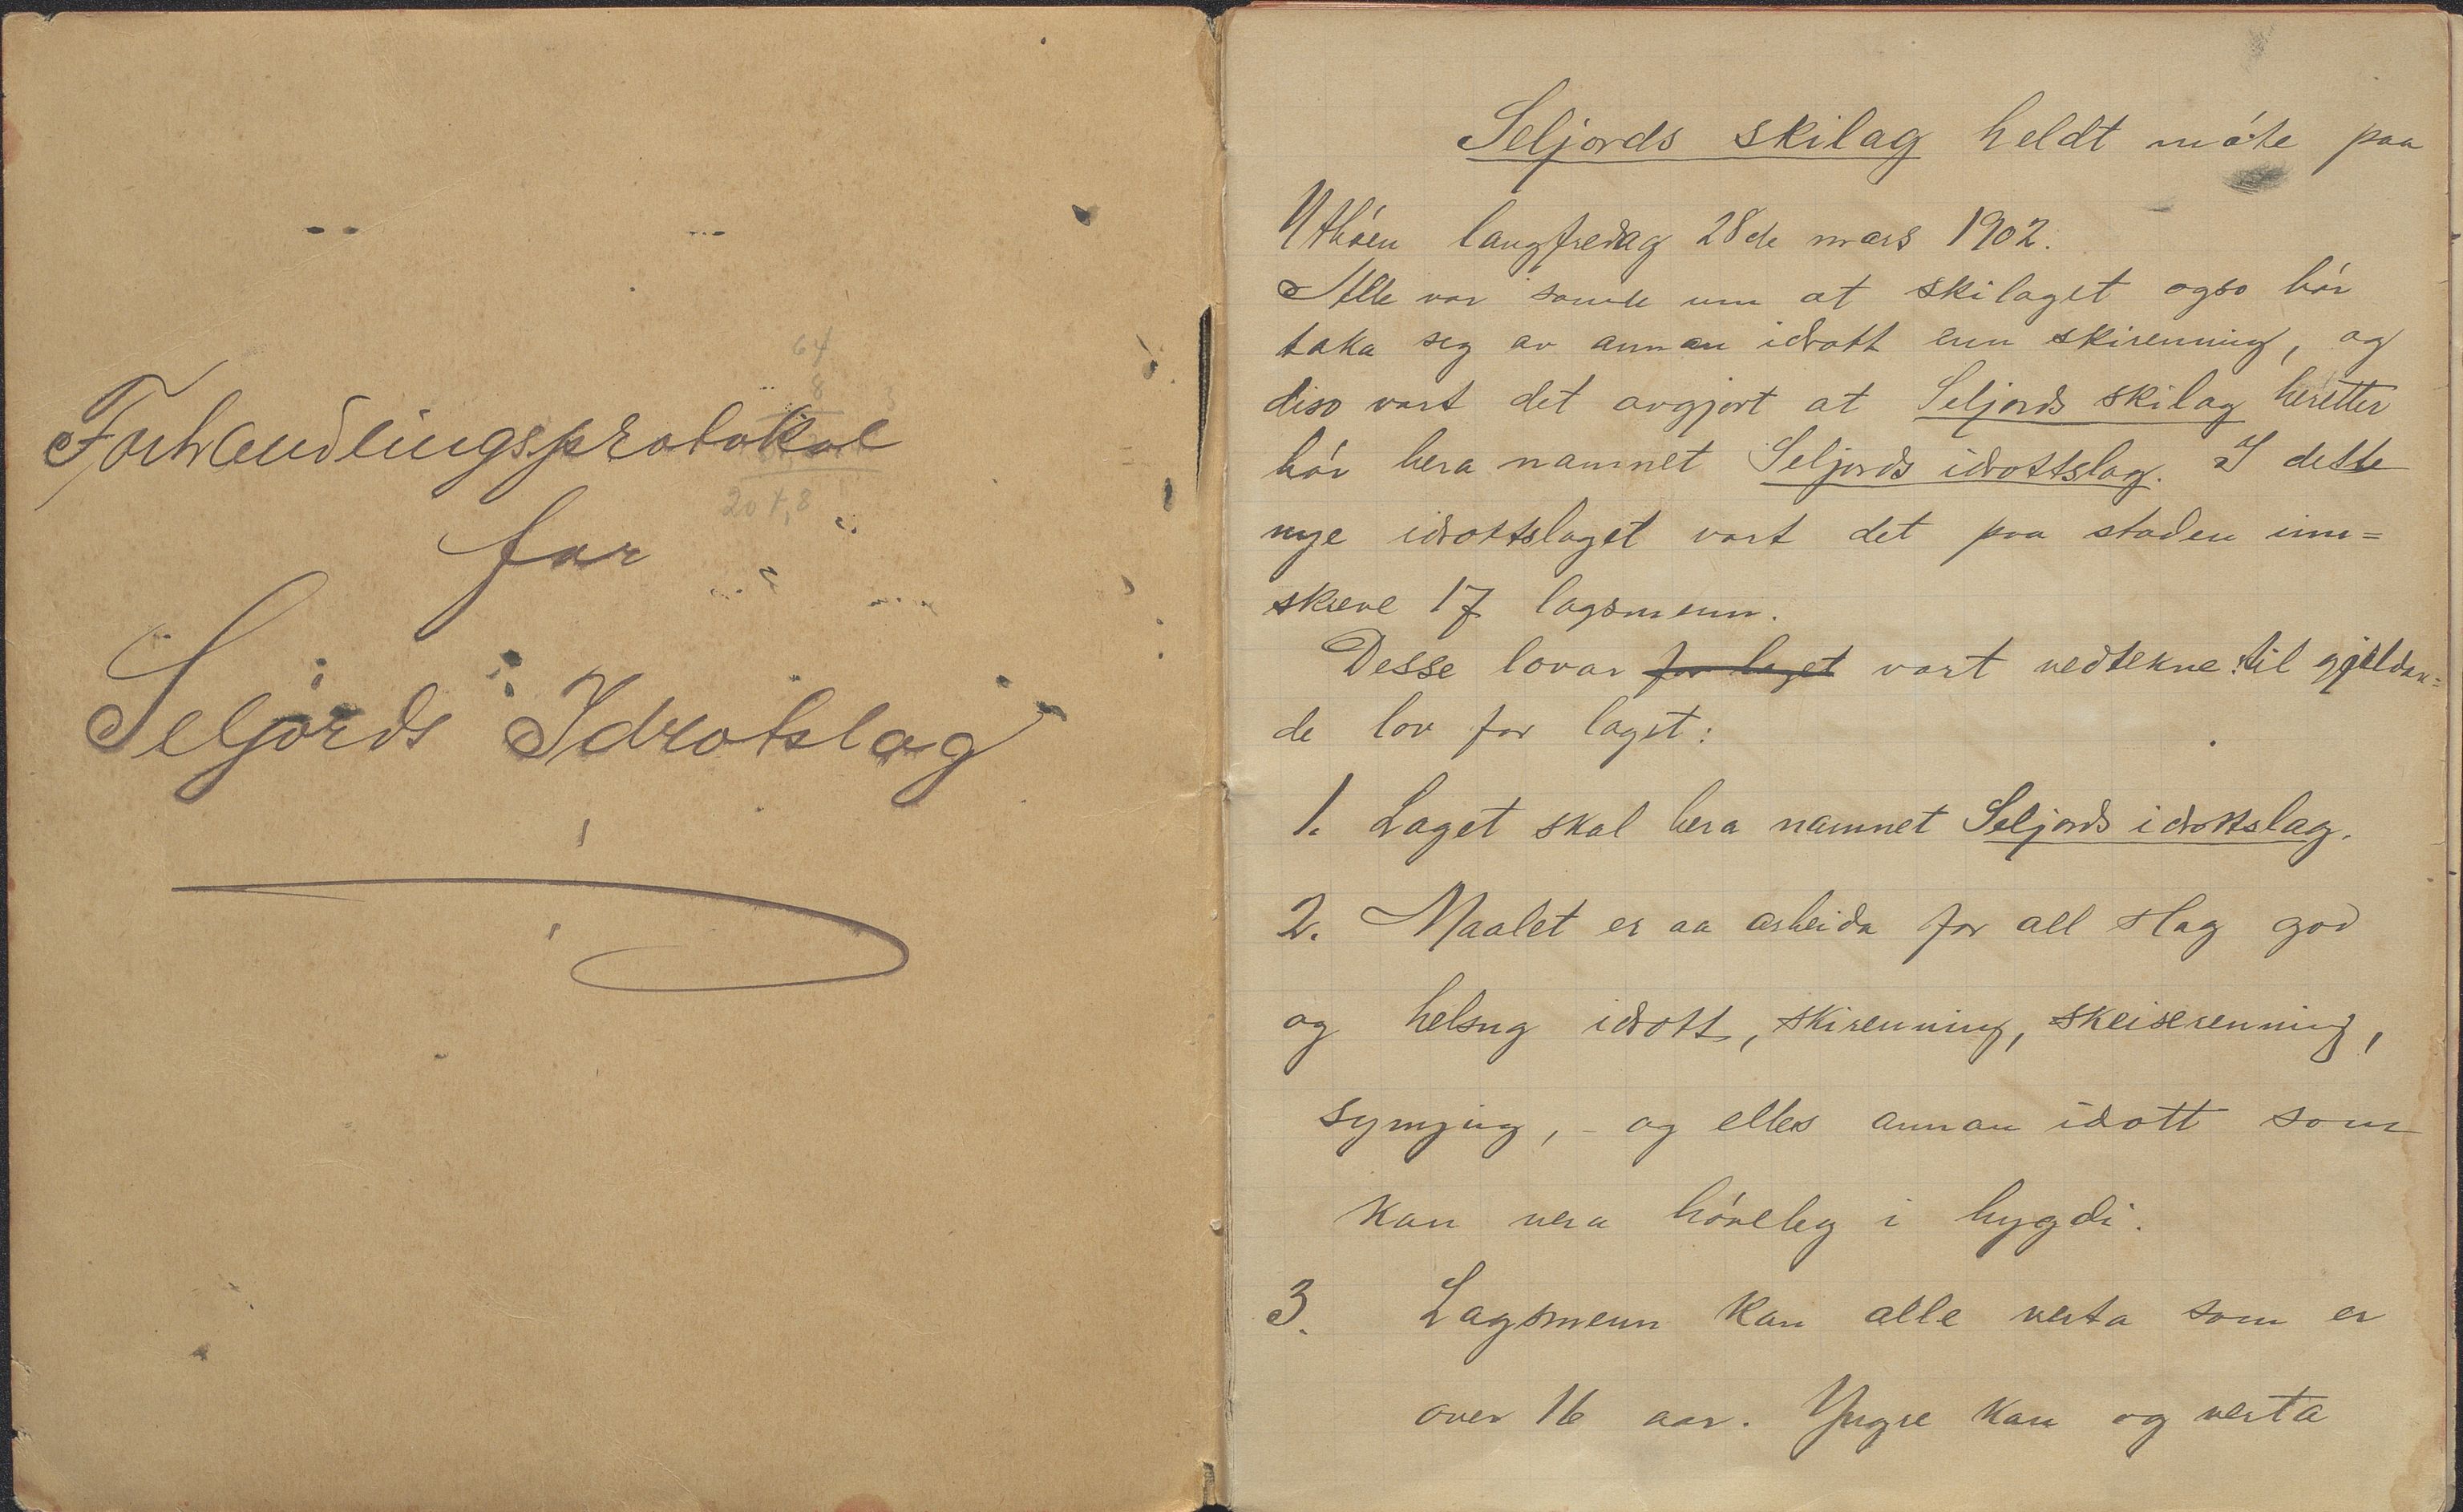 Forhandlingsprotokol
for
Seljords Idrotslag
64
8
204,8
Seljords skilag heldt móte paa
Uthóen langfredag 28de mars 1902.
Alle var samde um at skilaget ogso bór
taka seg av annan idrott enn skirenning, og
diso vart det avgjort at Seljords skilag heretter
bór bera namnet Seljords idrottslag. I dette
nye idrottslaget vart det paa staden inn=
skreve 17 lagsmenn.
Desse lovar for laget vart vedtekne til gjeldan=
de lov for laget:
1. Laget skal bera namnet Seljords idrottslag.
2. Maalet er aa arbeida for all slag god
og helsug idrott, skirenning, skeiserenning,
symjing, - og elles annan idott som
kan vera hóveleg i bygdi.
3. Lagsmenn kan alle verta som er
over 16 aar. Yngre kan og verta